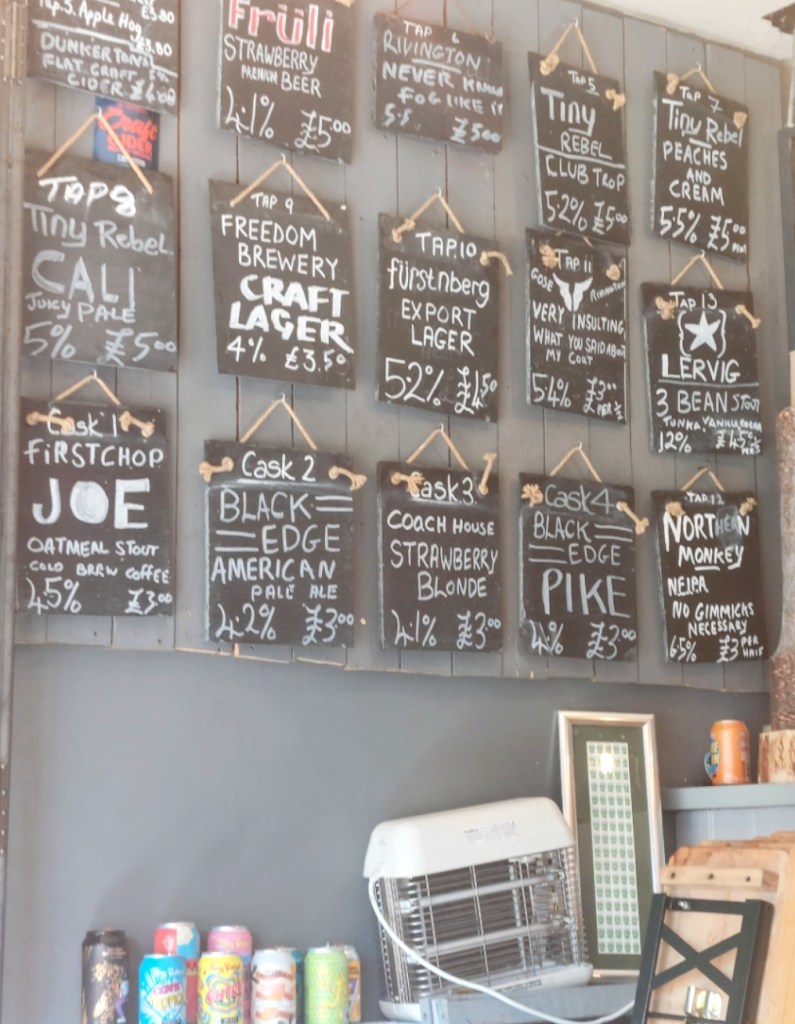 Tap.5. Apple Hog
£3.80
DUNKERTONS
FLAT CRAFT
CIDER £4.00
Früli
STRAWBERRY
PREMIUM
BEER
4.1% £5.00
TAP 6
RIVINGTON
NEVER KNOWN
FOG LIKE IT
£5.00
TAP 5
Tiny
REBEL
CLUB TROP
5.2% £5.00
TAP 7
Tiny Rebel
PEACHES
AND
CREAM
5.5% £5.00
TAP 8
Tiny Rebel
CALI
JUICY PALE
5% £5.00
TAP 9
FREEDOM
BREWERY
CRAFT
LAGER
4% £3.50
TAP.10
fürstnberg
EXPORT
LAGER
5.2% £4.50
TAP 11
GOSE RIVINGTON
VERY INSULTING
WHAT YOU SAID ABOUT
MY COAT
5.4% £3.00
PER ½
TAP 13
LERVIG
3 BEAN STOUT
TONKA VANILLA COCOA
12%
Cask 1
FIRSTCHOP
JOE
OATMEAL STOUT
COLD BREW COFFEE
4.5% £3.00
Cask 2
BLACK
EDGE
AMERICAN
PALE ALE
4.2% £3.00
Cask 3
COACH HOUSE
STRAWBERRY
BLONDE
4.1% £3.00
Cask 4
BLACK
EDGE
PIKE
4% £3.00
TAP.12
NORTHERN
MONKEY
NEIPA
NO GIMMICKS
NECESSARY
6.5% £3 PER
HALF